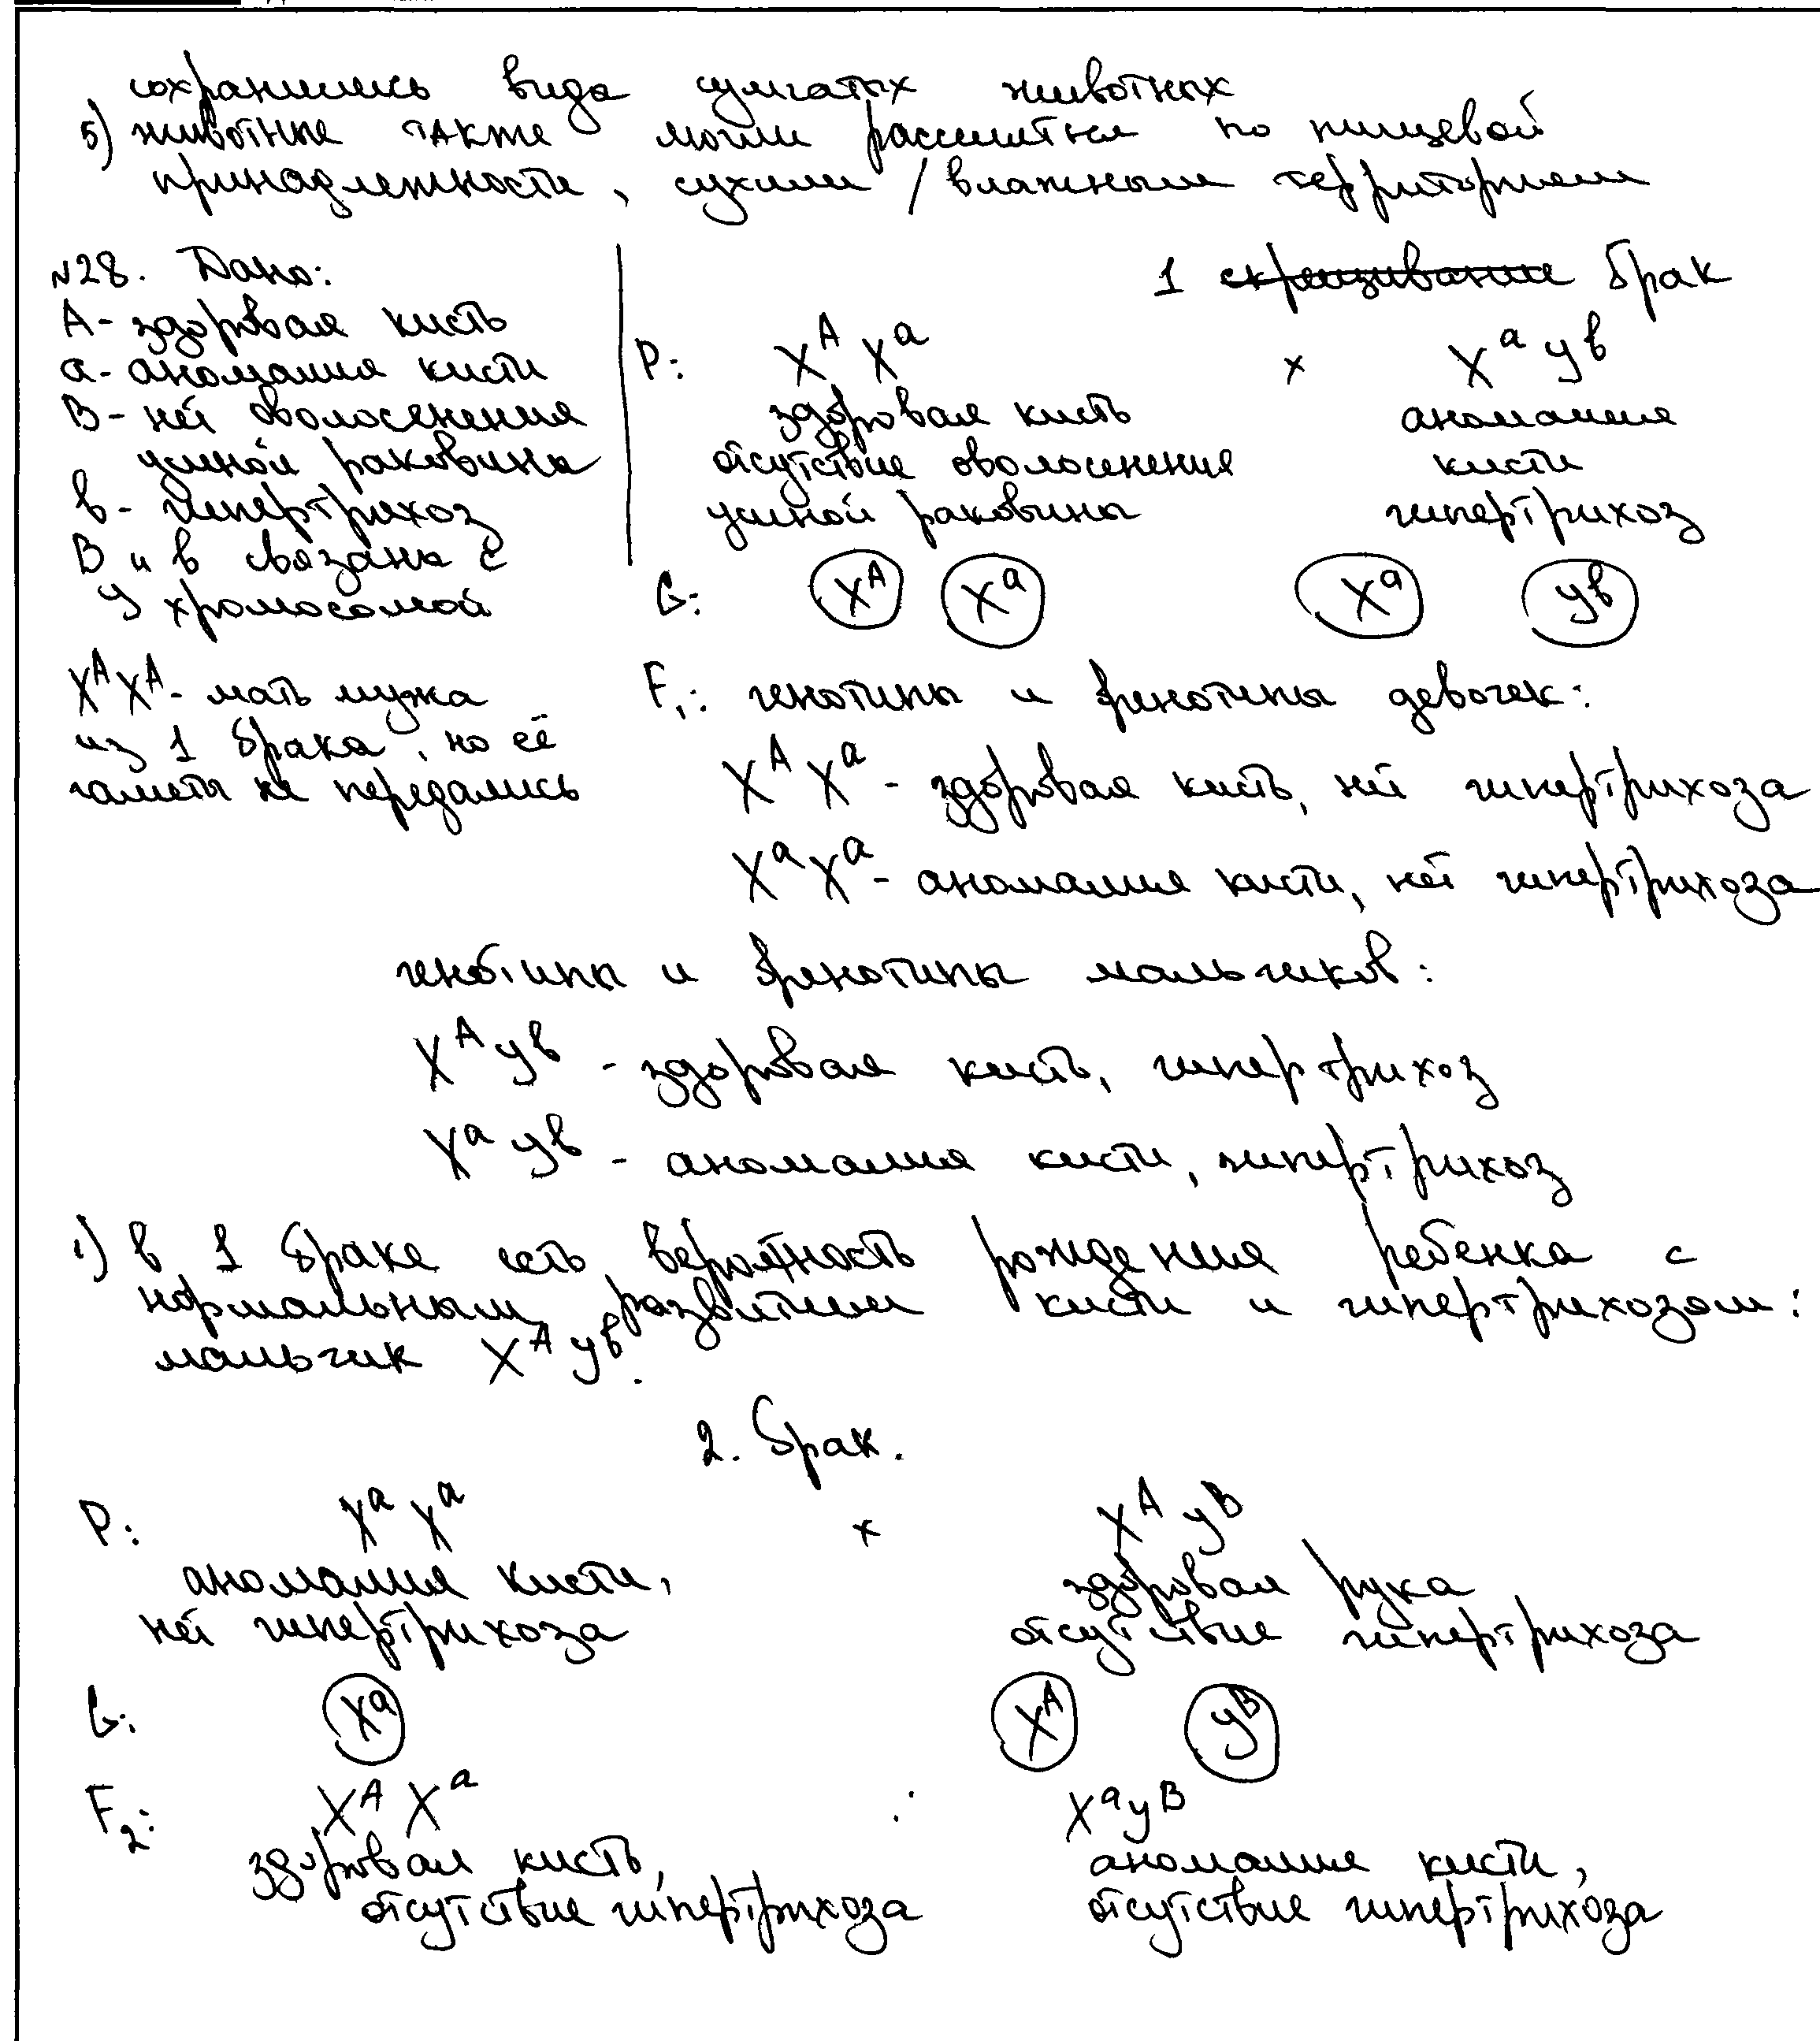 сохранились вида сумчатых животных
5) животные также могли расселится по пищевой
принадлежности, сухим / влажным территориям
№28. Дано:
А - здоровая кисть
а - аномалия кисти
В - нет оволосенения
ушной раковины
в - гипертрихоз
В и в связаны с
У хромосомой
X^A X^A - мать мужа
из 1 брака, но её
гаметы не передались
1 ~~скрещивание~~ брак
P: X^A X^a × X^a у^в
здоровая кисть аномалия
отсутствие оволосенения кисти
ушной раковины гипертрихоз
G: X^A X^a X^a у^в
F₁: генотипы и фенотипы девочек:
X^A X^a - здоровая кисть, нет гипертрихоза
X^a X^a - аномалия кисти, нет гипертрихоза
генотипы и фенотипы мальчиков:
X^A у^в - здоровая кисть, гипертрихоз
X^a у^в - аномалия кисти, гипертрихоз
1) в 1 браке есть вероятность рождения ребенка с
нормальным развитием кисти и гипертрихозом:
мальчик X^A у^в.
2. брак.
P: X^a X^a × X^A у^В
аномалия кисти, здоровая рука
нет гипертрихоза отсутствие гипертрихоза
G: X^a X^A у^В
F₂: X^A X^a : X^a у^В
здоровая кисть, аномалия кисти,
отсутствие гипертрихоза отсутствие гипертрихоза